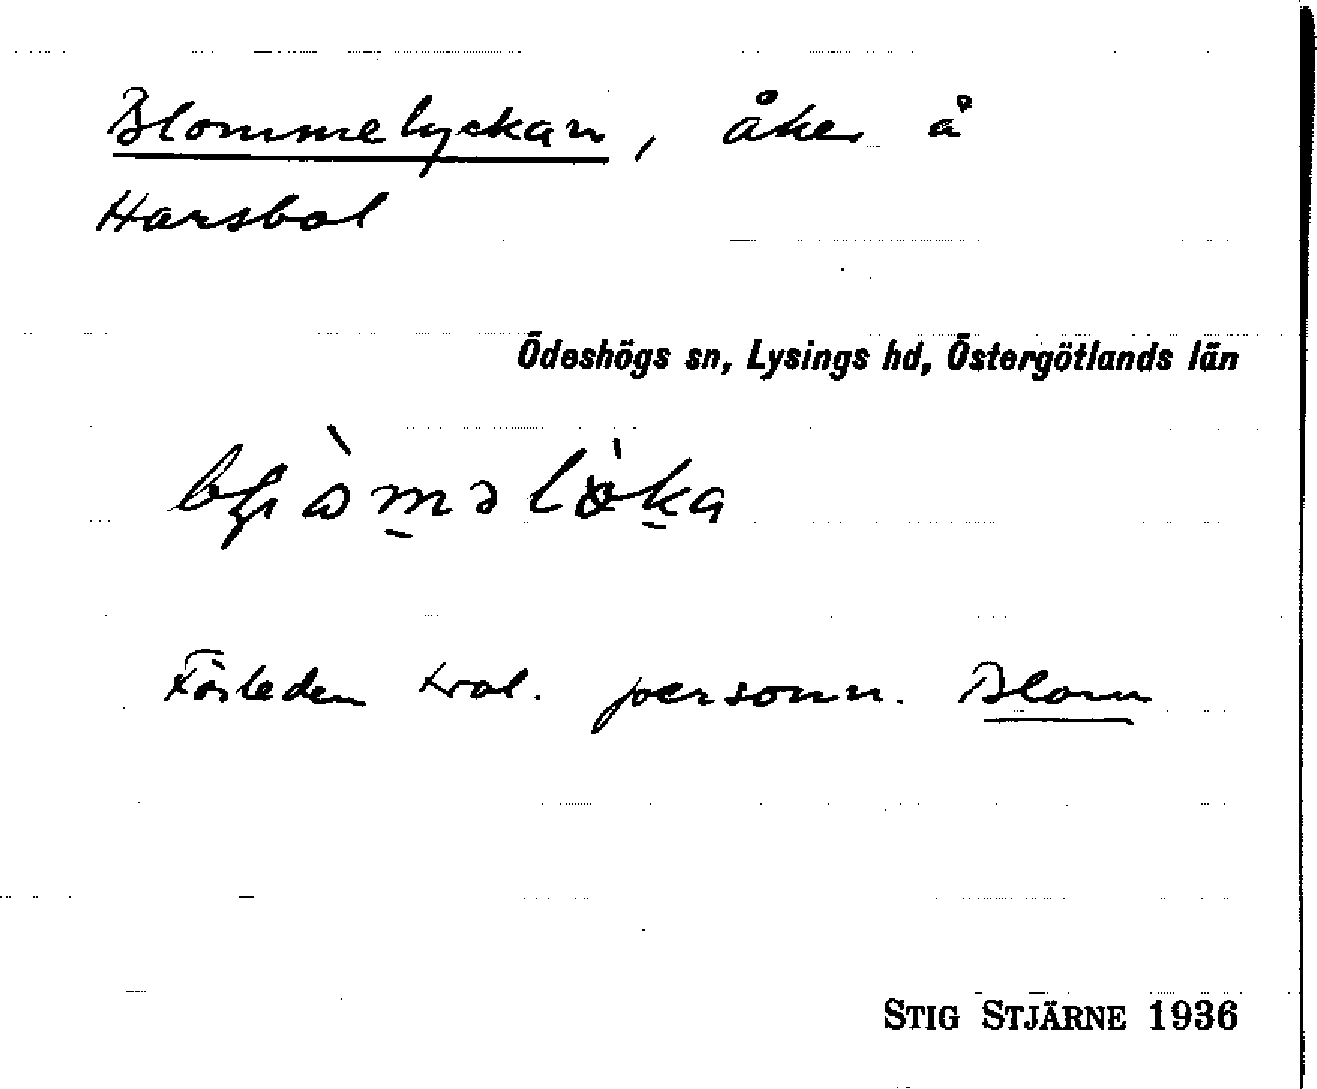 Blommelyckan, åker å
Harsbol
Ödeshögs sn, Lysings hd, Östergötlands län
Förleden trol. personn. Blom
STIG STJÄRNE 1936